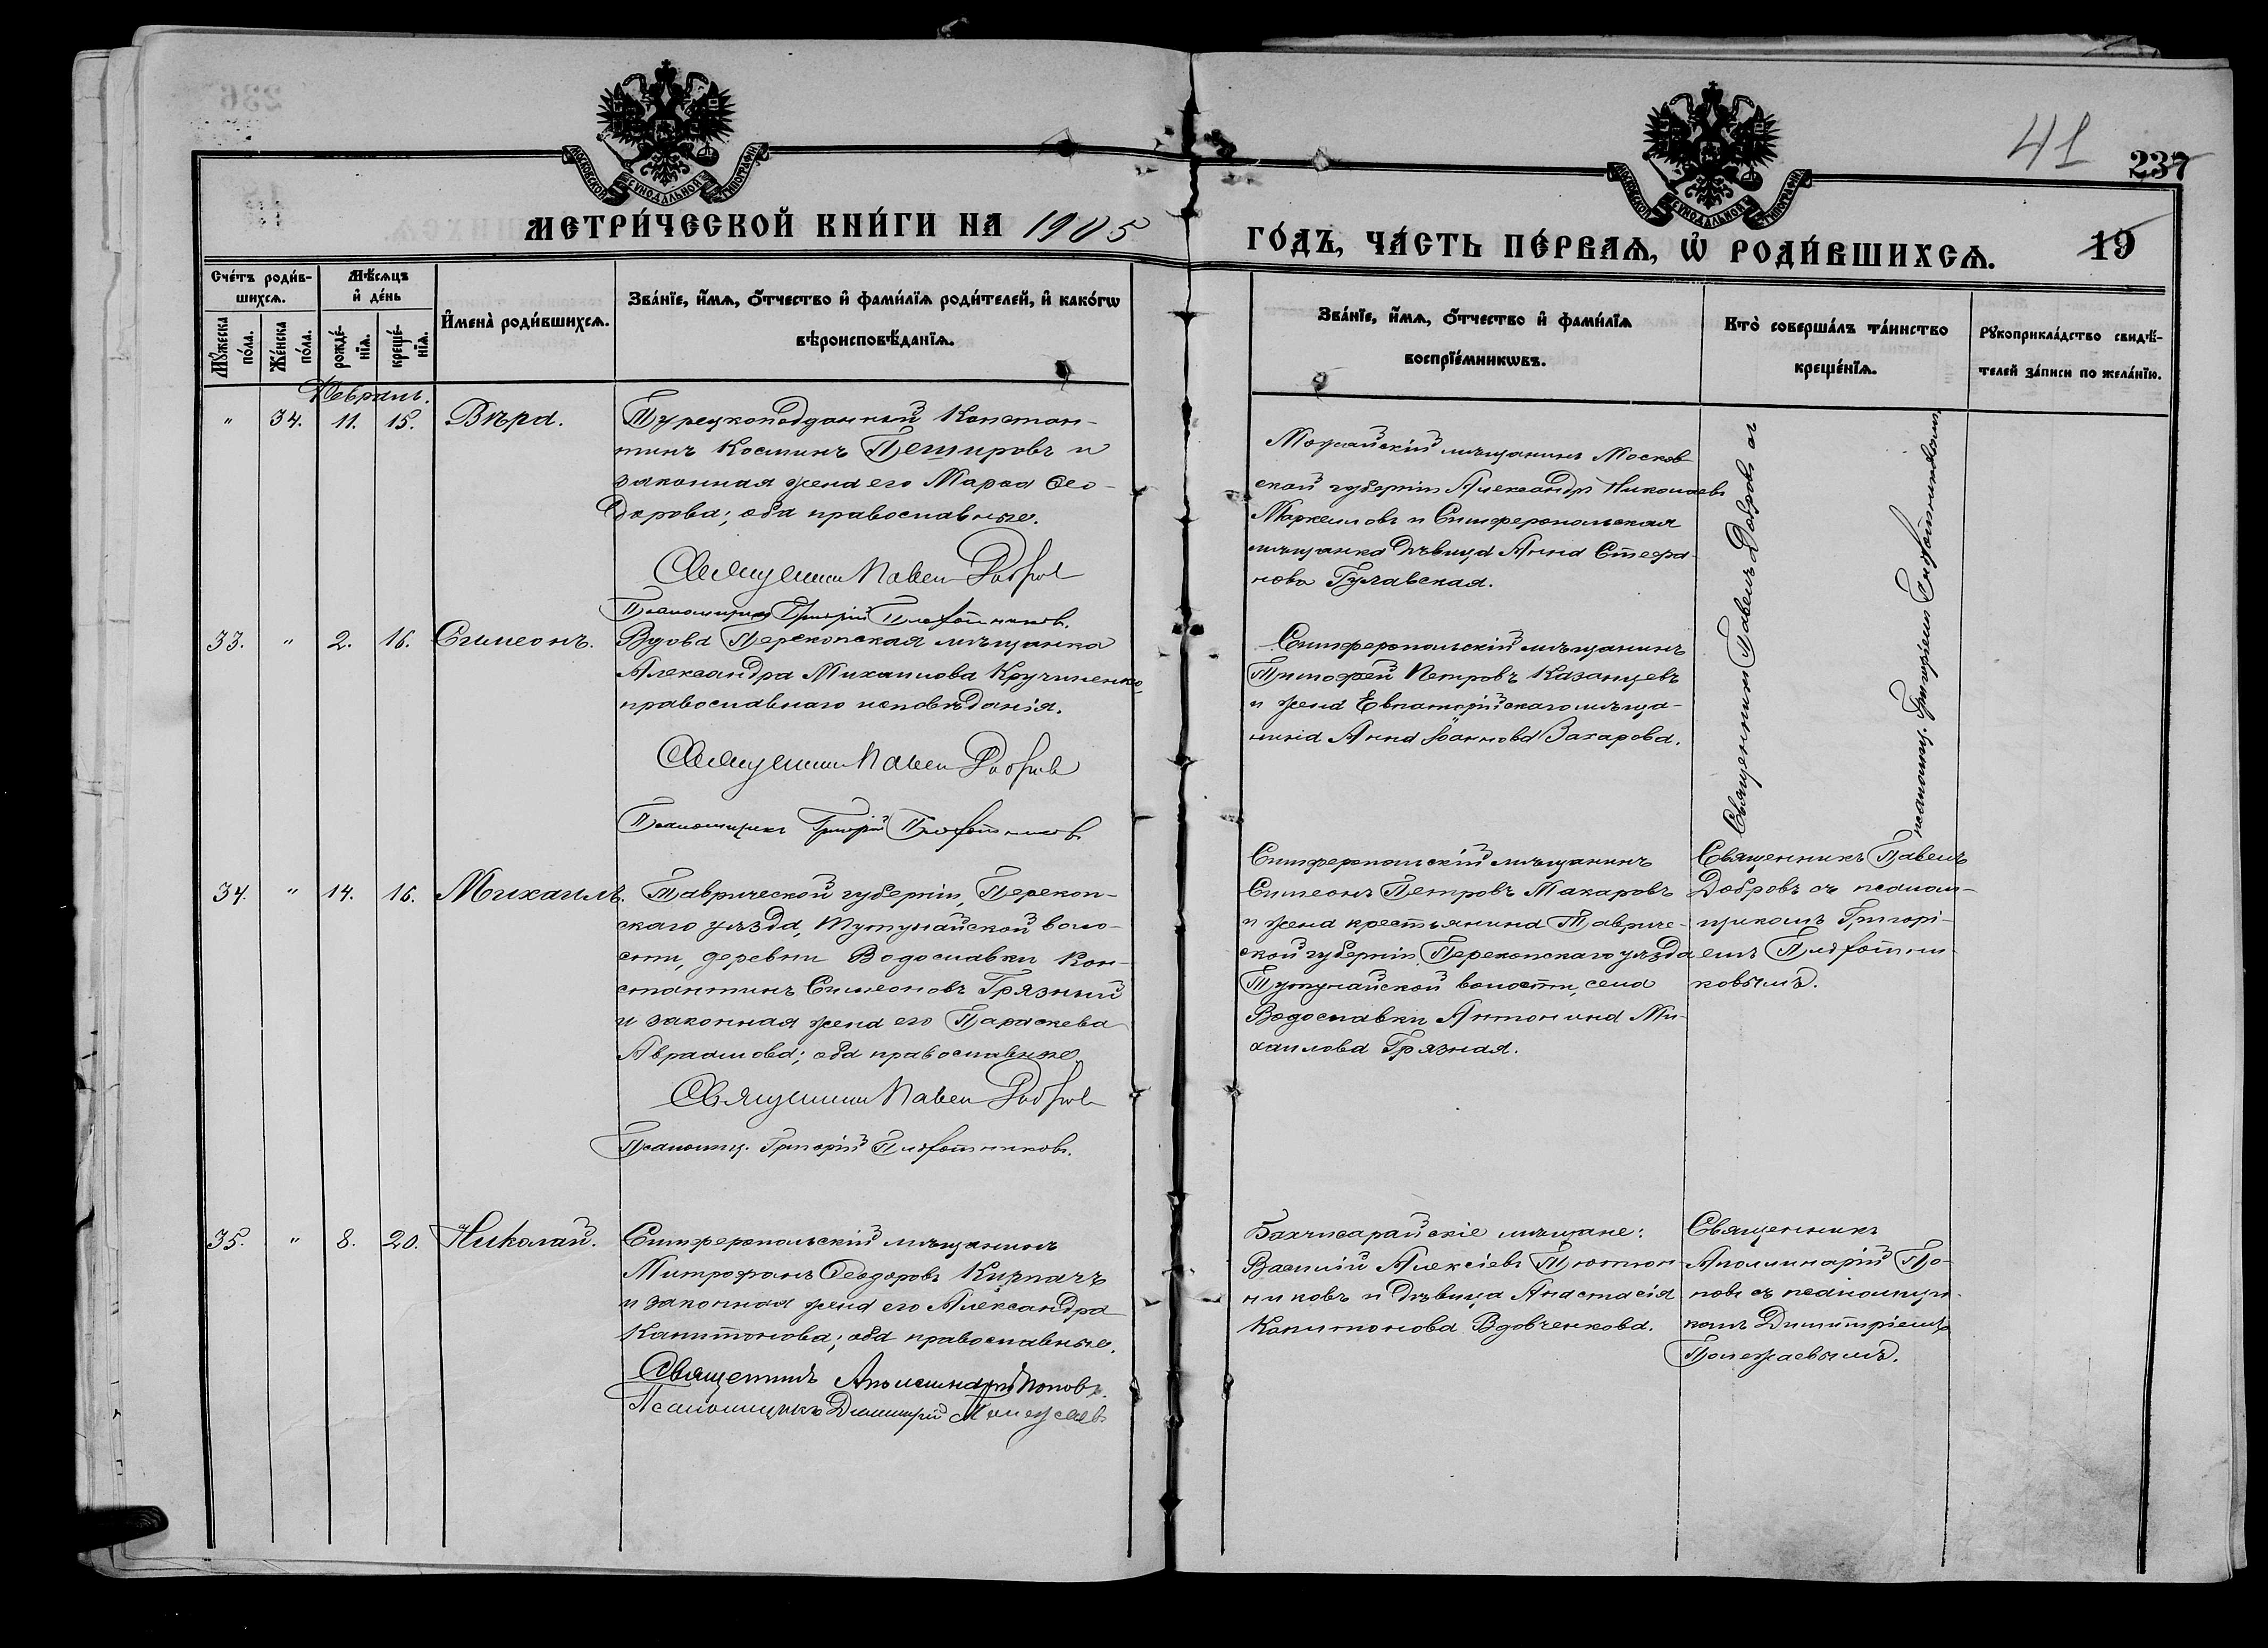 41
237
МОСКОВСКОЙ СѴНОДАЛЬНОЙ ТИПОГРАФІИ
МОСКОВСКОЙ СѴНОДАЛЬНОЙ ТИПОГРАФІИ
МЕТРИ́ЧЕСКОЙ КНИ́ГИ НА 1905
ГО́ДЪ, ЧА́СТЬ ПЕ́РВАѦ, Ѡ РОДИ́ВШИХСѦ.
19
Сче́тъ роди́в-
шихсѧ.
Мꙋ́жеска
по́ла.
Же́нска
по́ла.
Мѣ́сѧцъ
и҆ де́нь
рожде́-
нїѧ.
креще́-
нїѧ.
И҆мена̀ роди́вшихсѧ.
Зва́нїе, и҆́мѧ, ѻ҆́тчество и҆ фами́лїѧ роди́телей, и҆ како́гѡ
вѣроисповѣ́данїѧ.
Зва́нїе, и҆́мѧ, ѻ҆́тчество и҆ фами́лїѧ
воспрїе́мникѡвъ.
Кто̀ соверша́лъ та́инство
креще́нїѧ.
Рꙋкоприкла́дство свидѣ́-
телей за́писи по жела́нїю.
Февраль.
" 34. 11. 15. Вѣра.
Турецкоподданный Констан-
тинъ Костинъ Пешировъ и
законная жена его Марѳа Ѳео-
дорова; оба православные.
Священникъ Павелъ Добровъ
Псаломщикъ Григорій Плохотниковъ.
Можайскій мѣщанинъ Москов-
ской губерніи Александръ Николаевъ
Маркеловъ и Симферопольская
мѣщанка дѣвица Анна Стефа-
нова Гулавская.
Священникъ Павелъ Добровъ съ
псаломщ. Григоріемъ Плохотниковымъ
33. " 2. 16. Симеонъ.
Вдова Перекопская мѣщанка
Александра Михаилова Кручиненко,
православнаго исповѣданія.
Священникъ Павелъ Добровъ
Псаломщикъ Григорій Плохотниковъ.
Симферопольскій мѣщанинъ
Тимофей Петровъ Казанцевъ
и жена Евпаторійскаго мѣща-
нина Анна Іоаннова Захарова.
34. " 14. 16. Михаилъ.
Таврической губерніи, Перекоп-
скаго уѣзда, Тутунайской воло-
сти, деревни Водославки Кон-
стантинъ Симеоновъ Грязный
и законная жена его Параскева
Авраамова; оба православные
Священникъ Павелъ Добровъ
Псаломщ. Григорій Плохотниковъ.
Симферопольскій мѣщанинъ
Симеонъ Петровъ Макаровъ
и жена крестьянина Тавриче-
ской губерніи Перекопскаго уѣзда
Тутунайской волости, села
Водославки Антонина Ми-
хаилова Грязная.
Священникъ Павелъ
Добровъ съ псалом-
щикомъ Григорі-
емъ Плохотни-
ковымъ.
35. " 8. 20. Николай.
Симферопольскій мѣщанинъ
Митрофанъ Ѳеодоровъ Кирпачъ
и законная жена его Александра
Капитонова; оба православные.
Священникъ Аполлинарій Поповъ.
Псаломщикъ Димитрій Полежаевъ
Бахчисарайскіе мѣщане:
Василій Алексіевъ Тютюн-
никовъ и дѣвица Анастасія
Капитонова Вдовченкова.
Священникъ
Аполлинарій По-
повъ съ псаломщи-
комъ Димитріемъ
Полежаевымъ.